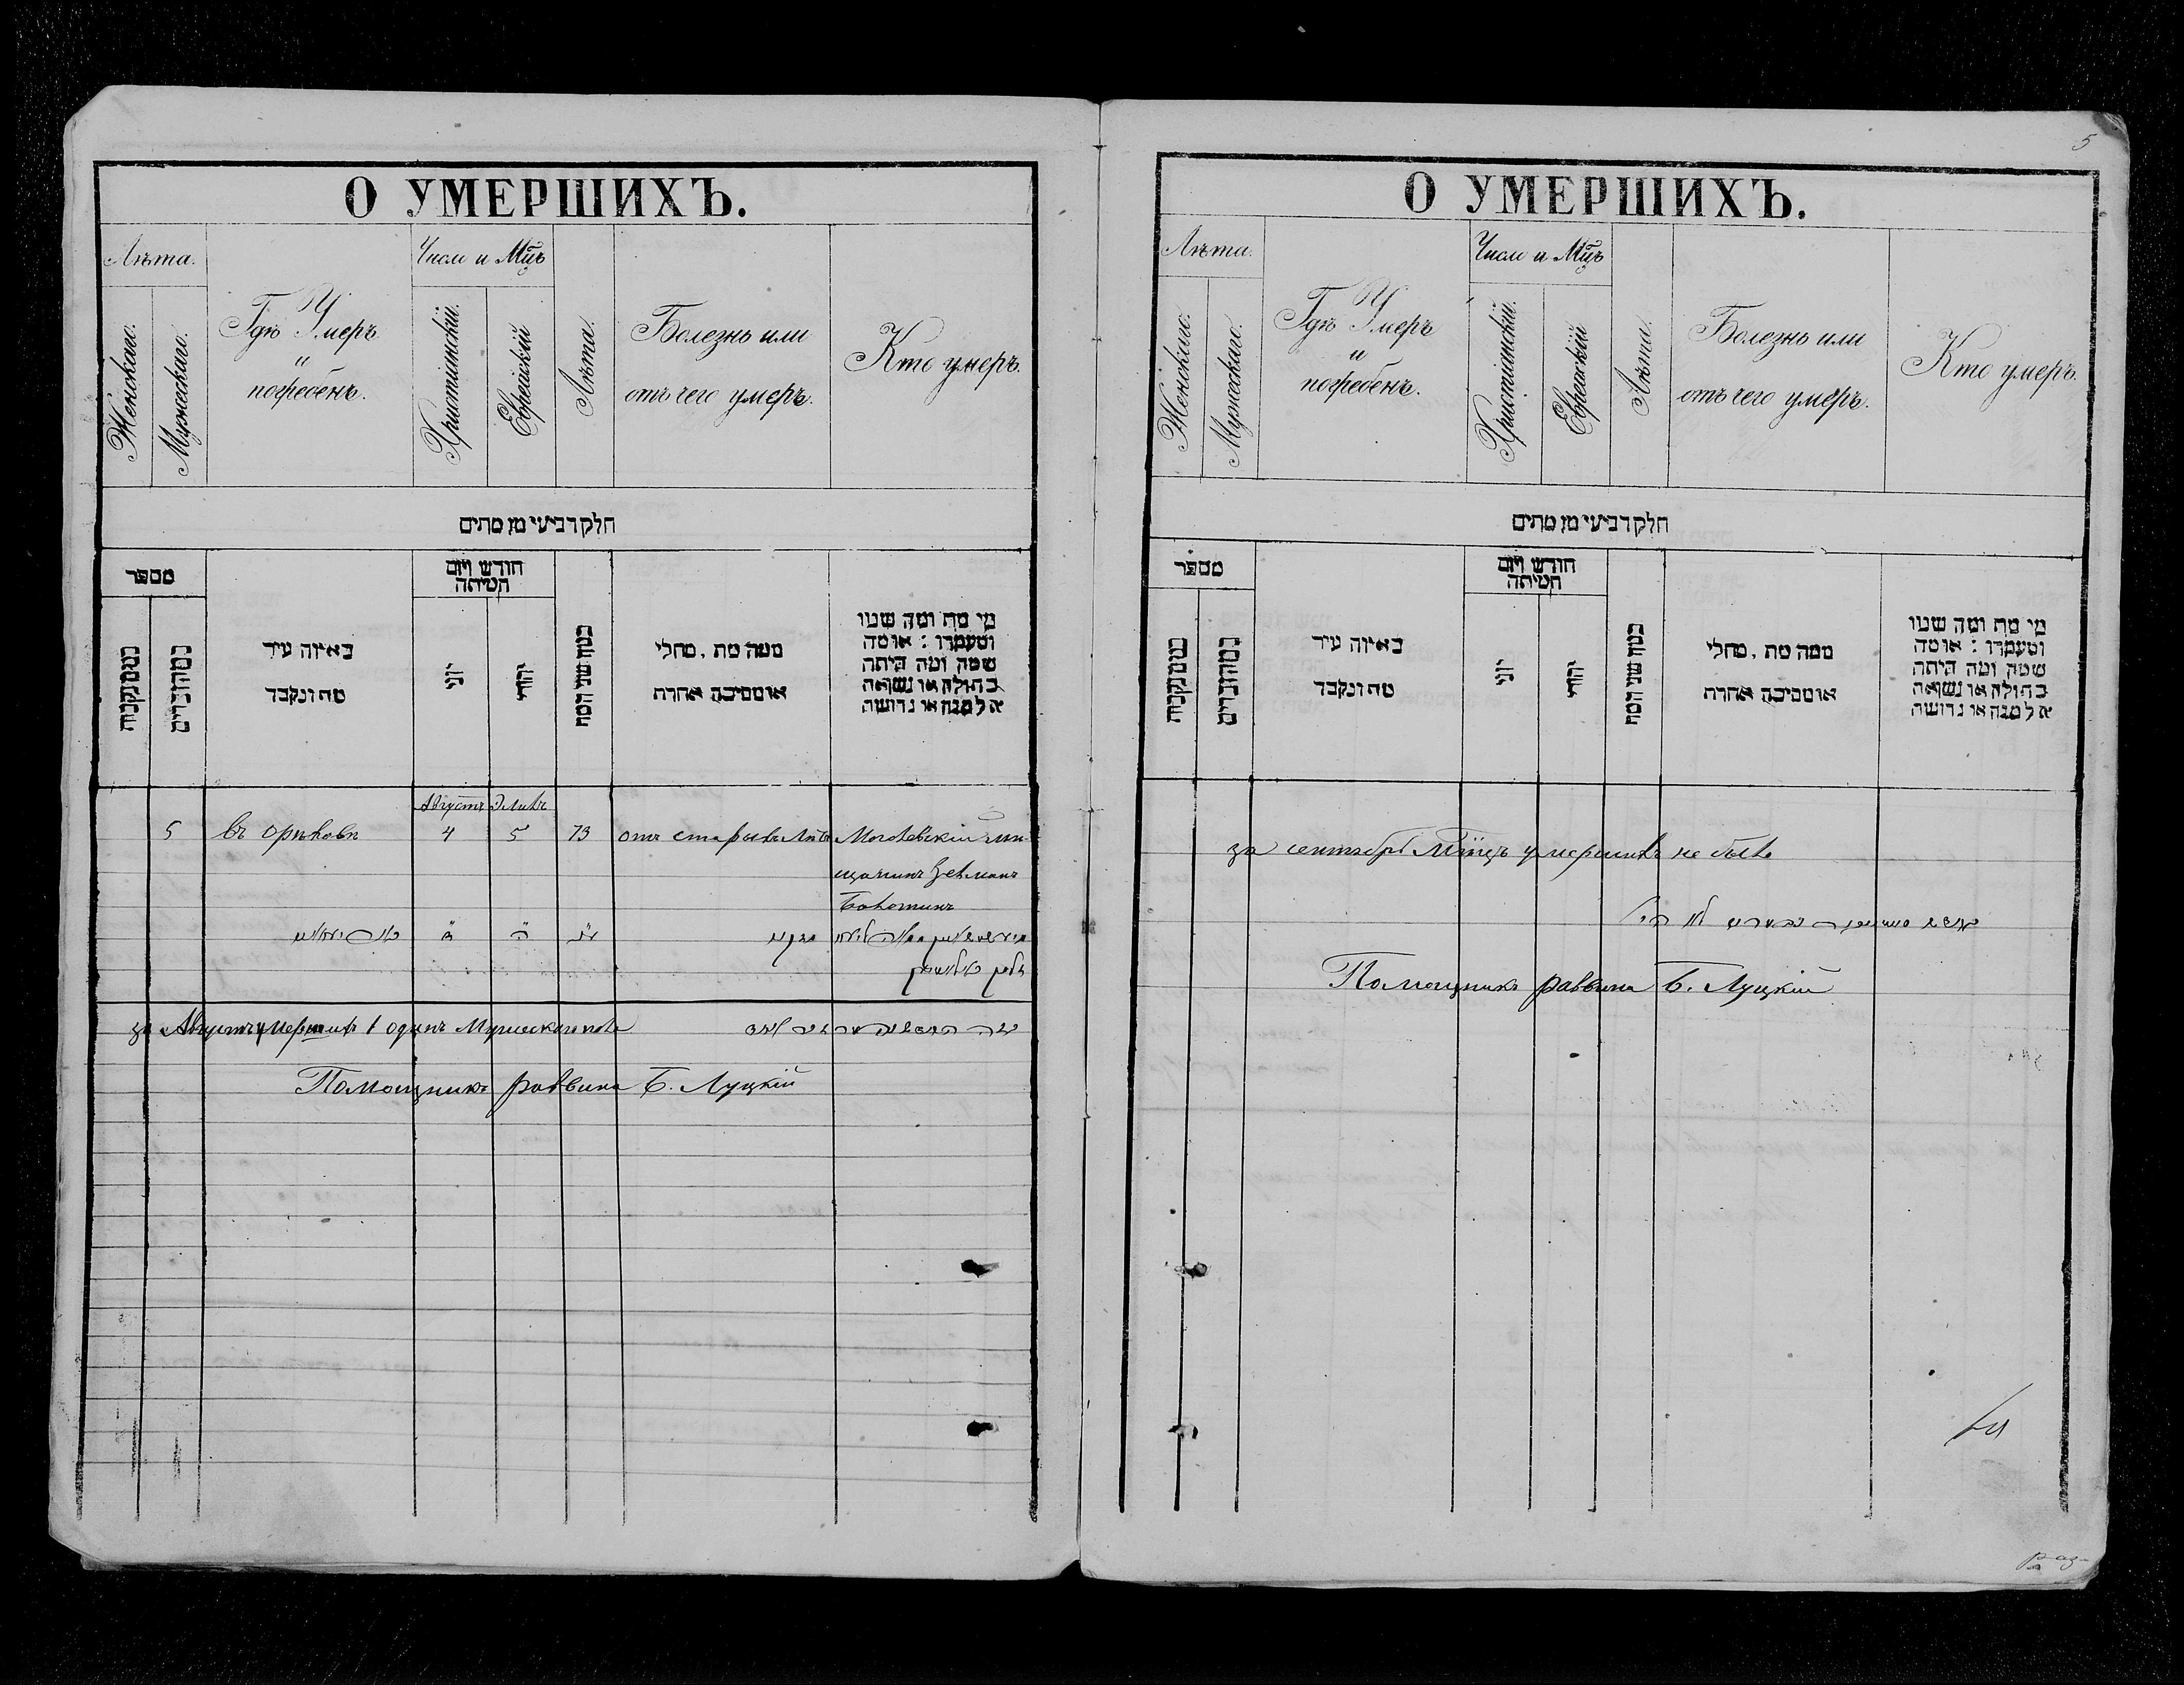 О УМЕРШИХЪ.
Лѣта.
Женскаго.
Мужескаго.
Гдѣ Умеръ
и
погребенъ.
Число и Мцъ
Христіянскій.
Еврейскій
Лѣта.
Болезнь или
отъ чего умеръ.
Кто умеръ.
חלק רביעי מן מתים
מספר
כמה זכרים
באיזה עיר
מת ונקבר
חודש ויום
המיתה
יוני
יהודי
כמה שני המת
ממה מת, מחלי
או מסיבה אחרת
מי מת ומה שמו
ומעמדו: או מה
שמה ומה היתה
בתולה או נשואה
אלמנה או גרושה
Августъ Элилъ
5 въ Орѣховѣ 4 5 73 отъ старыхъ лѣтъ
мѣ-
щанинъ Зелманъ
ד ה עג
за Августъ умершихъ 1 одинъ Мужескаго пола
Помощникъ раввина Б. Луцкій
5
О УМЕРШИХЪ.
Лѣта.
Женскаго.
Мужескаго.
Гдѣ Умеръ
и
погребенъ.
Число и Мцъ
Христіянскій.
Еврейскій
Лѣта.
Болезнь или
отъ чего умеръ.
Кто умеръ.
חלק רביעי מן מתים
מספר
כמה זכרים
באיזה עיר
מת ונקבר
חודש ויום
המיתה
יוני
יהודי
כמה שני המת
ממה מת, מחלי
או מסיבה אחרת
מי מת ומה שמו
ומעמדו: או מה
שמה ומה היתה
בתולה או נשואה
אלמנה או גרושה
за сентябрь Мѣсяцъ умершихъ не было
לא היו
Помощникъ раввина Б. Луцкій